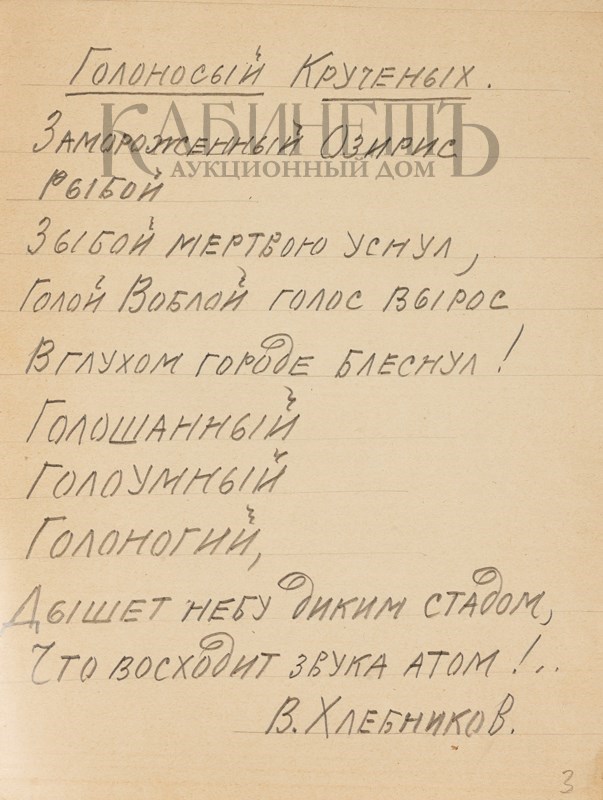 Голоносый Крученых.
КАБИНЕТЪ
АУКЦИОННЫЙ ДОМ
Замороженный Озирис
Рыбой
Зыбой мертвою уснул,
Голой Воблой голос вырос
В глухом городе блеснул!
Голошанный
Голоумный
Голоногий,
Дышет небу диким стадом,
Что восходит звука атом!..
В. Хлебников.
3